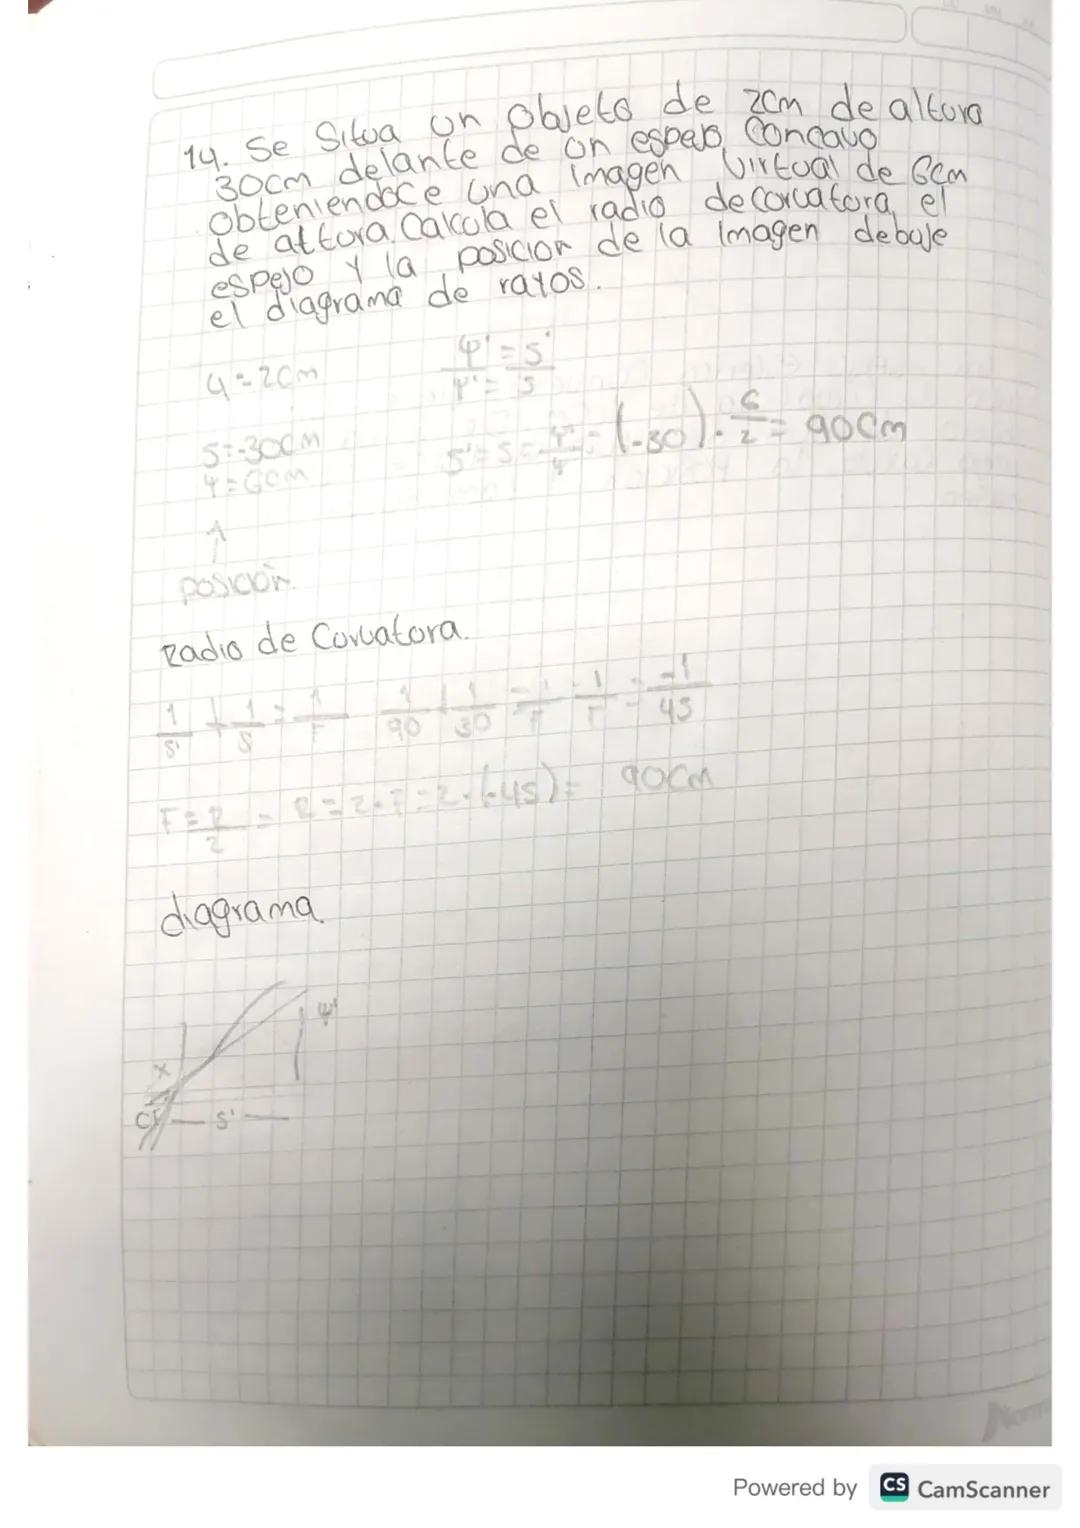 14. Se Situa un objeto de 2cm de altura
30cm delante de un espejo Concavo
obteniendoce una imagen virtual de 6cm
de altura. Calcula el radio de corvatora, el
espejo y la posicion de la imagen debuje
el diagrama de rayos.
y = 2cm
y' = s'
y' = s
s = -30cm
s' = s = y' / y = (-30) · 6/2 = 90cm
y = 6cm
posicion.
Radio de Corvatora.
1/s' + 1/s = 1/F 1/90 + 1/30 = 1/F = -1/45
F = R/2 = R = 2·F = 2·(-45) = 90cm
diagrama.
y'
x
CF — s' —
Norma
Powered by CS CamScanner